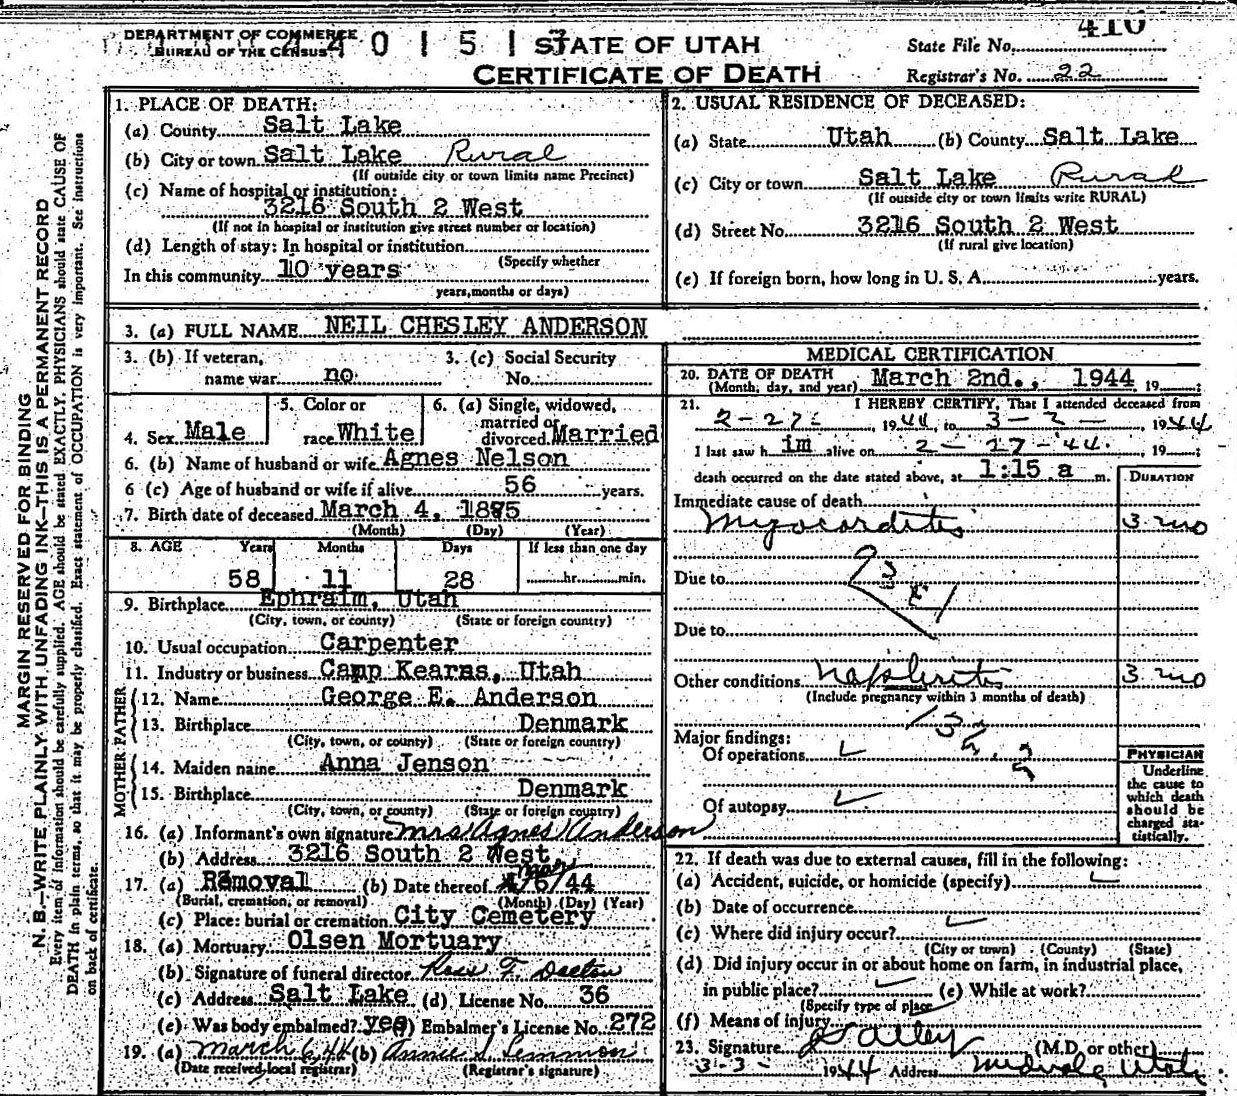 DEPARTMENT OF COMMERCE
BUREAU OF THE CENSUS
STATE OF UTAH
CERTIFICATE OF DEATH
State File No. 410
Registrar's No. 22
MARGIN RESERVED FOR BINDING
N. B.—WRITE PLAINLY WITH UNFADING INK—THIS IS A PERMANENT RECORD
Every item of information should be carefully supplied. AGE should be stated EXACTLY. PHYSICIANS should state CAUSE OF
DEATH in plain terms, so that it may be properly classified. Exact statement of OCCUPATION is very important. See instructions
on back of certificate.
1. PLACE OF DEATH:
(a) County Salt Lake
(b) City or town Salt Lake Rural
(If outside city or town limits name Precinct)
(c) Name of hospital or institution:
3216 South 2 West
(If not in hospital or institution give street number or location)
(d) Length of stay: In hospital or institution
(Specify whether
In this community 10 years
years, months or days)
2. USUAL RESIDENCE OF DECEASED:
(a) State Utah (b) County Salt Lake
(c) City or town Salt Lake Rural
(If outside city or town limits write RURAL)
(d) Street No. 3216 South 2 West
(If rural give location)
(e) If foreign born, how long in U. S. A. years.
3. (a) FULL NAME NEIL CHESLEY ANDERSON
3. (b) If veteran, 3. (c) Social Security
name war no No.
4. Sex Male 5. Color or race White 6. (a) Single, widowed, married or divorced Married
6. (b) Name of husband or wife Agnes Nelson
6 (c) Age of husband or wife if alive 56 years.
7. Birth date of deceased March 4, 1885
(Month) (Day) (Year)
8. AGE Years Months Days If less than one day
58 11 28 hr. min.
9. Birthplace Ephraim, Utah
(City, town, or county) (State or foreign country)
10. Usual occupation Carpenter
11. Industry or business Camp Kearns, Utah
FATHER
12. Name George E. Anderson
13. Birthplace Denmark
(City, town, or county) (State or foreign country)
MOTHER
14. Maiden name Anna Jenson
15. Birthplace Denmark
(City, town, or county) (State or foreign country)
16. (a) Informant's own signature Mrs Agnes Anderson
(b) Address 3216 South 2 West
17. (a) Removal (b) Date thereof Mar /6/44
(Burial, cremation, or removal) (Month) (Day) (Year)
(c) Place: burial or cremation City Cemetery
18. (a) Mortuary Olsen Mortuary
(b) Signature of funeral director
(c) Address Salt Lake (d) License No. 36
(e) Was body embalmed? yes Embalmer's License No. 272
19. (a) March 6, 44 (b) Annie S. Lemmon
(Date received local registrar) (Registrar's signature)
MEDICAL CERTIFICATION
20. DATE OF DEATH March 2nd., 1944 19 ;
(Month, day, and year)
21. I HEREBY CERTIFY, That I attended deceased from
2-27- , 1944, to 3-2- , 1944
I last saw h im alive on 2-27-44. , 19 ;
death occurred on the date stated above, at 1:15 a m.
DURATION
Immediate cause of death
Myocarditis 3 mo
Due to
Due to
Other conditions Nephritis 3 mo
(Include pregnancy within 3 months of death)
Major findings:
Of operations
Of autopsy
PHYSICIAN
Underline
the cause to
which death
should be
charged sta-
tistically.
22. If death was due to external causes, fill in the following:
(a) Accident, suicide, or homicide (specify)
(b) Date of occurrence
(c) Where did injury occur?
(City or town) (County) (State)
(d) Did injury occur in or about home on farm, in industrial place,
in public place? (e) While at work?
(Specify type of place
(f) Means of injury
23. Signature Alley (M.D. or other)
3-3- 1944 Address Midvale Utah